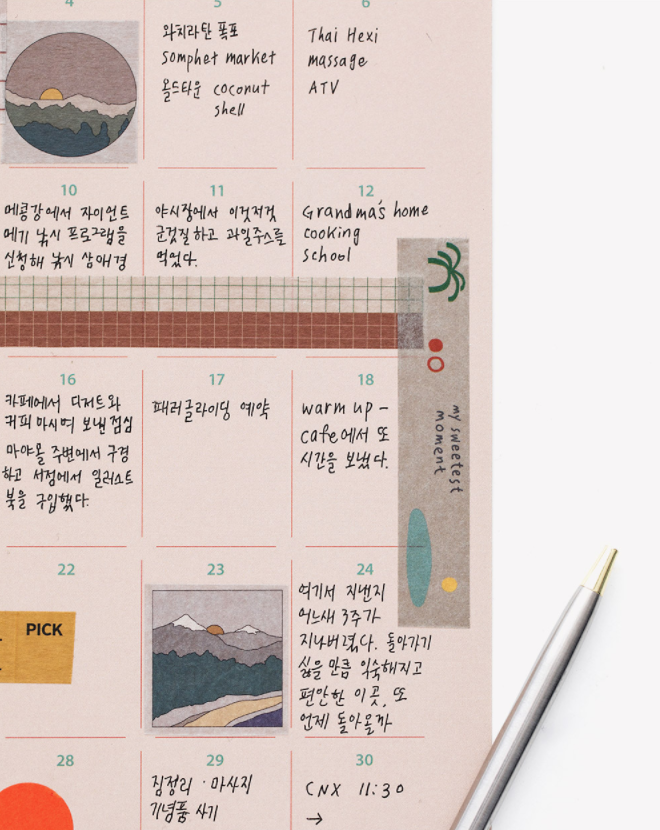 4
5
6
와치라탄 폭포
somphet market
올드타운 coconut
shell
Thai Hexi
massage
ATV
10
메콩강에서 자이언트
메기 낚시 프로그램을
신청해 낚시 삼매경
11
야시장에서 이것저것
군것질하고 과일주스를
먹었다.
12
Grandma's home
cooking
school
16
카페에서 디저트와
커피 마시며 보낸 점심
마야몰 주변에서 구경
하고 서점에서 일러스트
북을 구입했다.
17
패러글라이딩 예약
18
warm up -
cafe에서 또
시간을 보냈다.
my sweetest
moment
22
PICK
23
24
여기서 지낸지
어느새 3주가
지나버렸다. 돌아가기
싫을 만큼 익숙해지고
편안한 이 곳, 또
언제 돌아올까
28
29
짐정리 · 마사지
기념품 사기
30
CNX 11:30
→